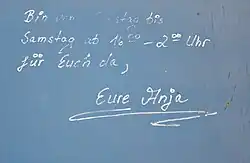 Bin von
bis
Samstag ab 16 00 - 2 00 Uhr
für Euch da,
Eure Anja